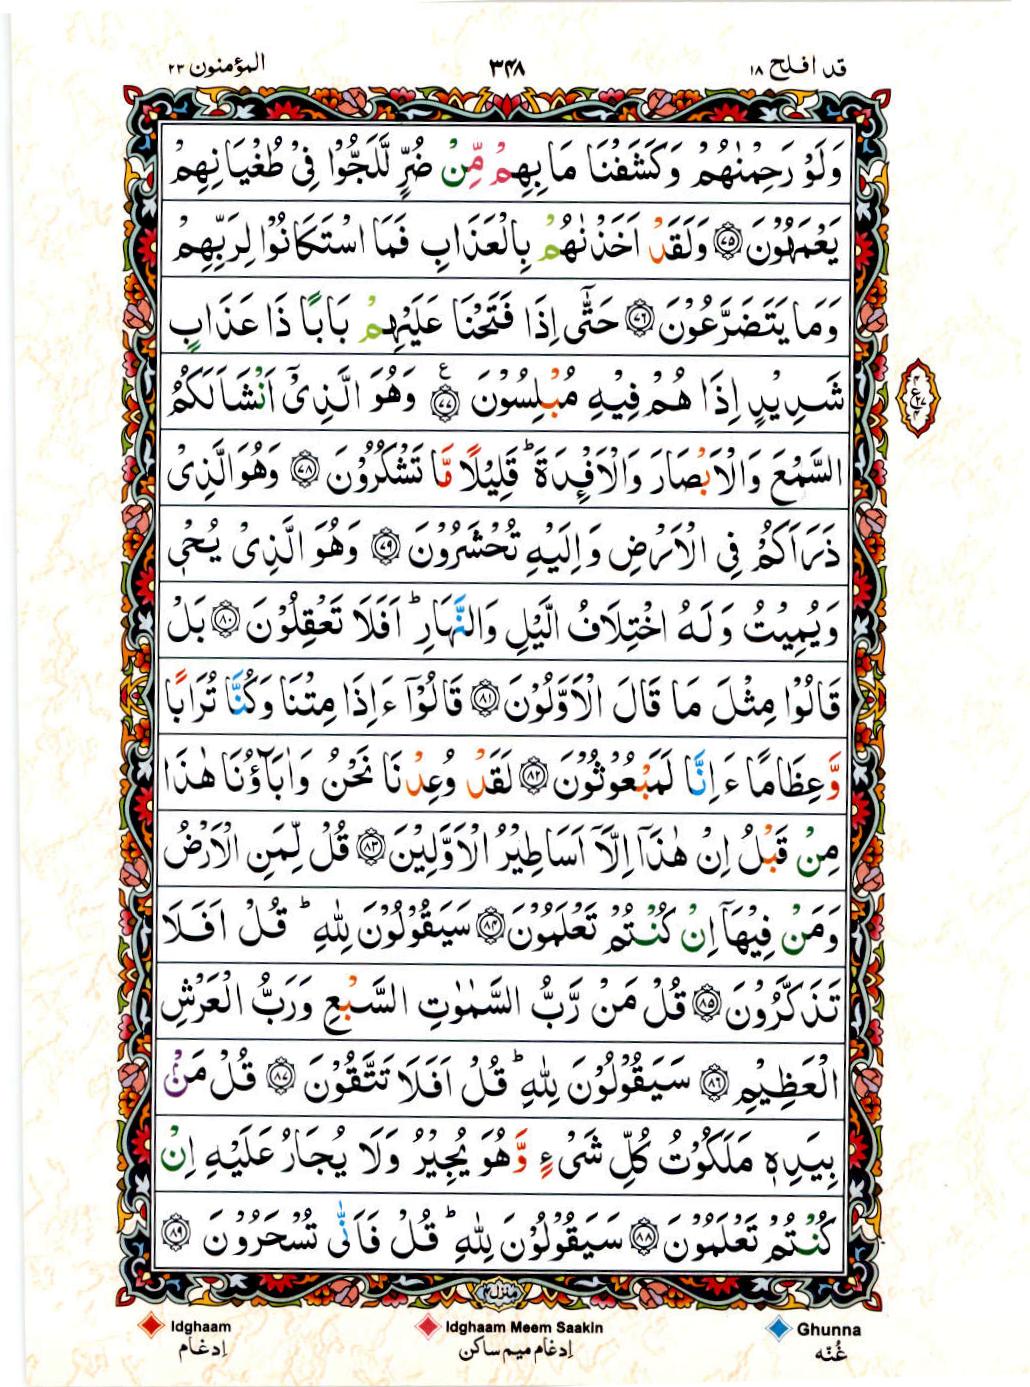 قد افلح ١٨ ٣٤٨ المؤمنون ٢٣
وَلَوْ رَحِمْنٰهُمْ وَكَشَفْنَا مَا بِهِمْ مِّنْ ضُرٍّ لَّلَجُّوْا فِيْ طُغْيَانِهِمْ
يَعْمَهُوْنَ ۝٧٥ وَلَقَدْ اَخَذْنٰهُمْ بِالْعَذَابِ فَمَا اسْتَكَانُوْا لِرَبِّهِمْ
وَمَا يَتَضَرَّعُوْنَ ۝٧٦ حَتّٰٓى اِذَا فَتَحْنَا عَلَيْهِمْ بَابًا ذَا عَذَابٍ
شَدِيْدٍ اِذَا هُمْ فِيْهِ مُبْلِسُوْنَ ۝٧٧ ع وَهُوَ الَّذِيْٓ اَنْشَاَ لَكُمُ
السَّمْعَ وَالْاَبْصَارَ وَالْاَفْـِٕدَةَ ؕ قَلِيْلًا مَّا تَشْكُرُوْنَ ۝٧٨ وَهُوَ الَّذِيْ
ذَرَاَكُمْ فِي الْاَرْضِ وَاِلَيْهِ تُحْشَرُوْنَ ۝٧٩ وَهُوَ الَّذِيْ يُحْيٖ
وَيُمِيْتُ وَلَهُ اخْتِلَافُ الَّيْلِ وَالنَّهَارِ ؕ اَفَلَا تَعْقِلُوْنَ ۝٨٠ بَلْ
قَالُوْا مِثْلَ مَا قَالَ الْاَوَّلُوْنَ ۝٨١ قَالُوْٓا ءَاِذَا مِتْنَا وَكُنَّا تُرَابًا
وَّعِظَامًا ءَاِنَّا لَمَبْعُوْثُوْنَ ۝٨٢ لَقَدْ وُعِدْنَا نَحْنُ وَاٰبَآؤُنَا هٰذَا
مِنْ قَبْلُ اِنْ هٰذَآ اِلَّآ اَسَاطِيْرُ الْاَوَّلِيْنَ ۝٨٣ قُلْ لِّمَنِ الْاَرْضُ
وَمَنْ فِيْهَآ اِنْ كُنْتُمْ تَعْلَمُوْنَ ۝٨٤ سَيَقُوْلُوْنَ لِلّٰهِ ؕ قُلْ اَفَلَا
تَذَكَّرُوْنَ ۝٨٥ قُلْ مَنْ رَّبُّ السَّمٰوٰتِ السَّبْعِ وَرَبُّ الْعَرْشِ
الْعَظِيْمِ ۝٨٦ سَيَقُوْلُوْنَ لِلّٰهِ ؕ قُلْ اَفَلَا تَتَّقُوْنَ ۝٨٧ قُلْ مَنْۢ
بِيَدِهٖ مَلَكُوْتُ كُلِّ شَيْءٍ وَّهُوَ يُجِيْرُ وَلَا يُجَارُ عَلَيْهِ اِنْ
كُنْتُمْ تَعْلَمُوْنَ ۝٨٨ سَيَقُوْلُوْنَ لِلّٰهِ ؕ قُلْ فَاَنّٰى تُسْحَرُوْنَ ۝٨٩
منزل ٤
Idghaam Idghaam Meem Saakin Ghunna
اِدغَام اِدغَام میم ساکن غُنّہ